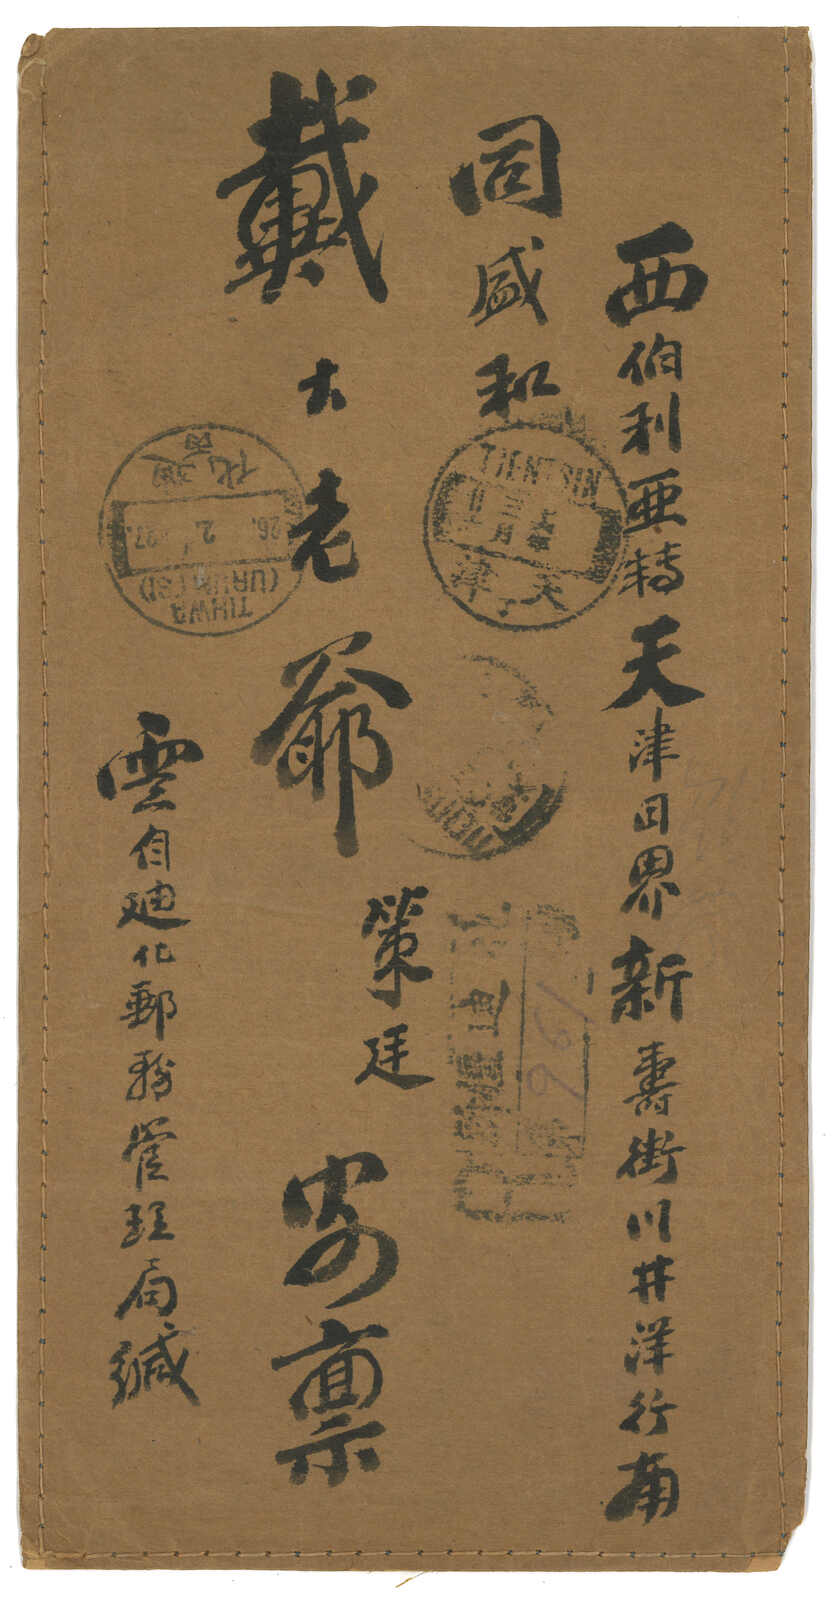 西伯利亜轉天津日界新壽街川井洋行南
同盛和
戴大老爺策廷安禀
雲自廸化郵務管理局緘
TIENTSIN
天津
TIHWA
(URUMTSI)
26. 2. 27.
迪化